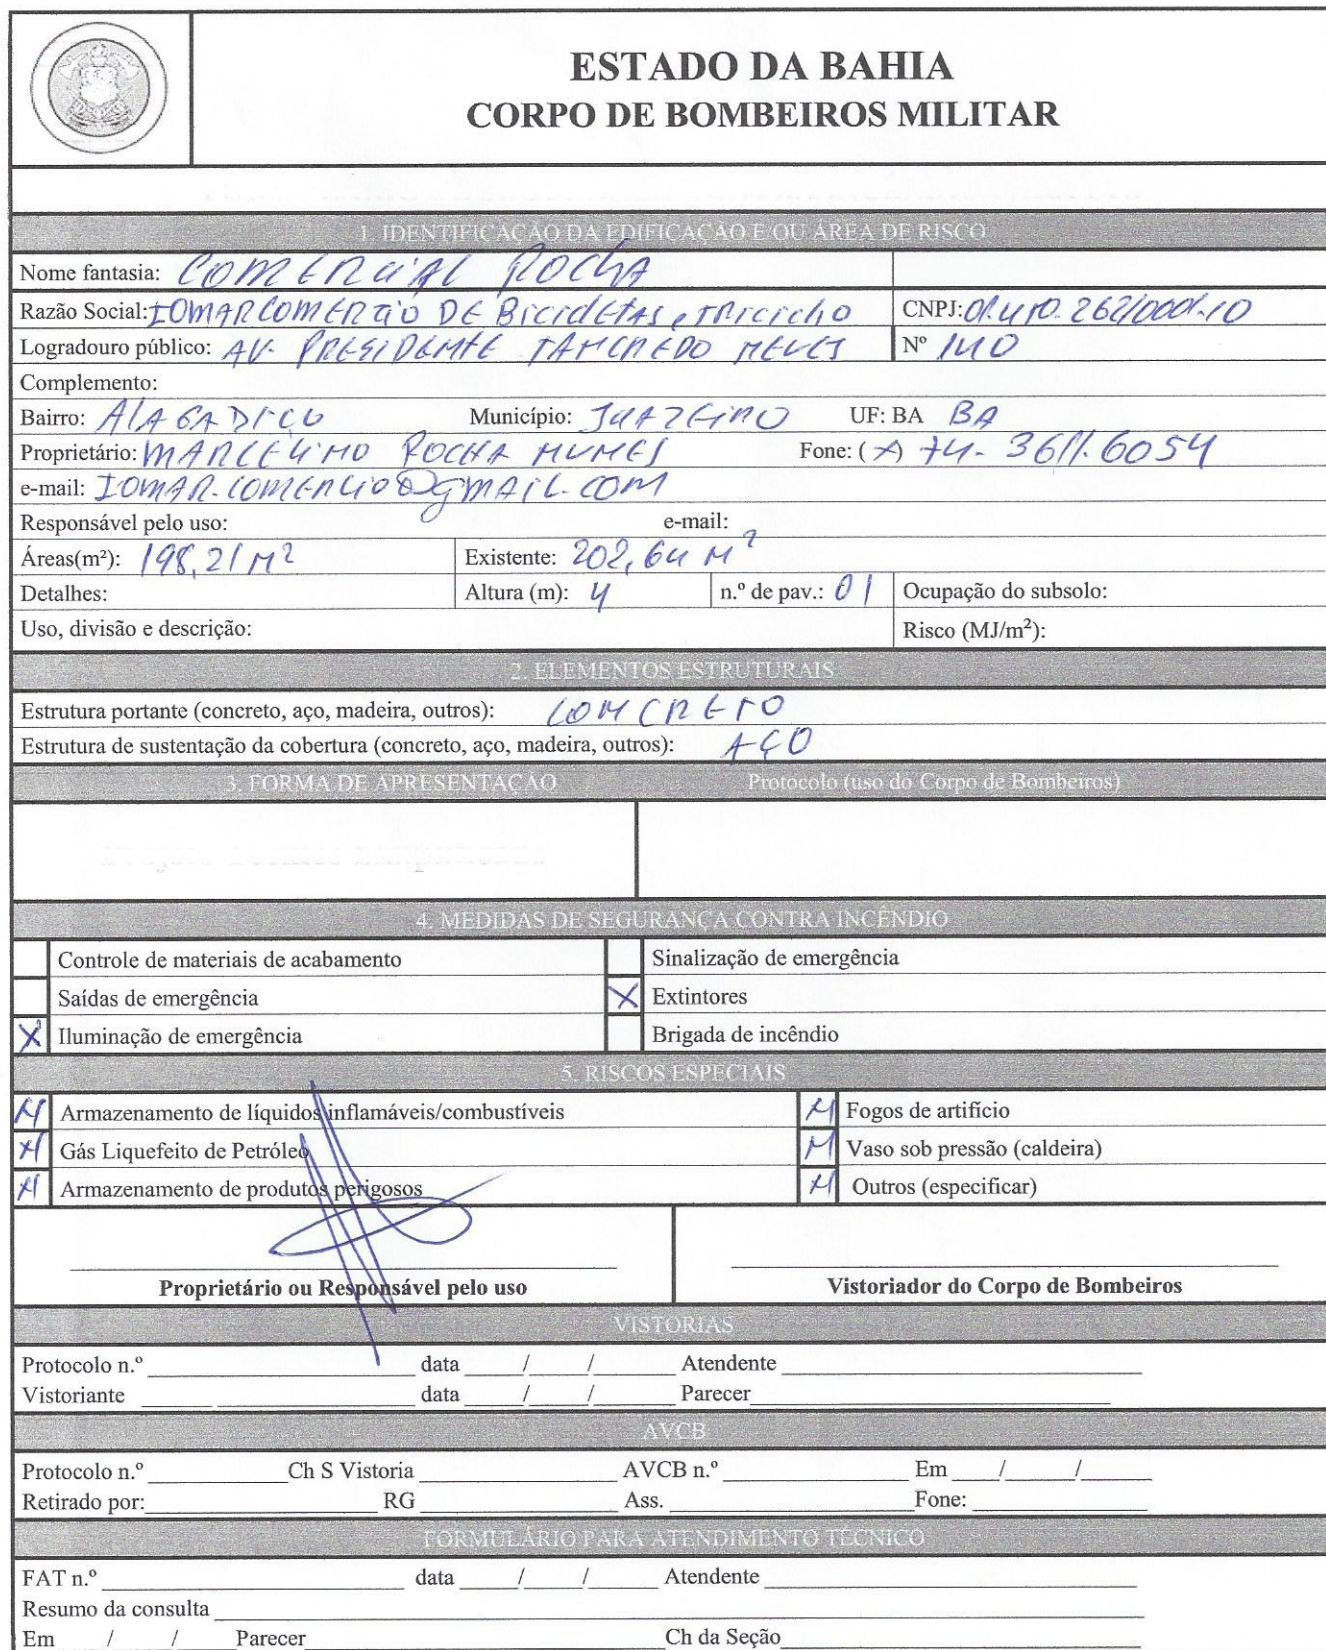 ESTADO DA BAHIA
CORPO DE BOMBEIROS MILITAR
1. IDENTIFICAÇÃO DA EDIFICAÇÃO E OU ÁREA DE RISCO
Nome fantasia: COMERCIAL ROCHA
Razão Social: IOMAR COMERTIO DE BicicletAs e TRicicho CNPJ: 01.410.262/0001-10
Logradouro público: AV. PRESIDENTE TANCREDO NEVES Nº 140
Complemento:
Bairro: AlAGADIÇO Município: JUAZEIRO UF: BA BA
Proprietário: MARCELINO ROCHA NUNES Fone: ( ) 74- 3611.6054
e-mail: IOMAR.COMERCIO@GMAIL.COM
Responsável pelo uso: e-mail:
Áreas(m²): 198,21 M² Existente: 202,64 M²
Detalhes: Altura (m): 4 n.º de pav.: 01 Ocupação do subsolo:
Uso, divisão e descrição: Risco (MJ/m²):
2. ELEMENTOS ESTRUTURAIS
Estrutura portante (concreto, aço, madeira, outros): CONCRETO
Estrutura de sustentação da cobertura (concreto, aço, madeira, outros): AÇO
3. FORMA DE APRESENTAÇÃO Protocolo (uso do Corpo de Bombeiros)
4. MEDIDAS DE SEGURANÇA CONTRA INCÊNDIO
Controle de materiais de acabamento Sinalização de emergência
Saídas de emergência X Extintores
X Iluminação de emergência Brigada de incêndio
5. RISCOS ESPECIAIS
N Armazenamento de líquidos inflamáveis/combustíveis N Fogos de artifício
N Gás Liquefeito de Petróleo N Vaso sob pressão (caldeira)
N Armazenamento de produtos perigosos N Outros (especificar)
Proprietário ou Responsável pelo uso Vistoriador do Corpo de Bombeiros
VISTORIAS
Protocolo n.º data / / Atendente
Vistoriante data / / Parecer
AVCB
Protocolo n.º Ch S Vistoria AVCB n.º Em / /
Retirado por: RG Ass. Fone:
FORMULÁRIO PARA ATENDIMENTO TÉCNICO
FAT n.º data / / Atendente
Resumo da consulta
Em / / Parecer Ch da Seção